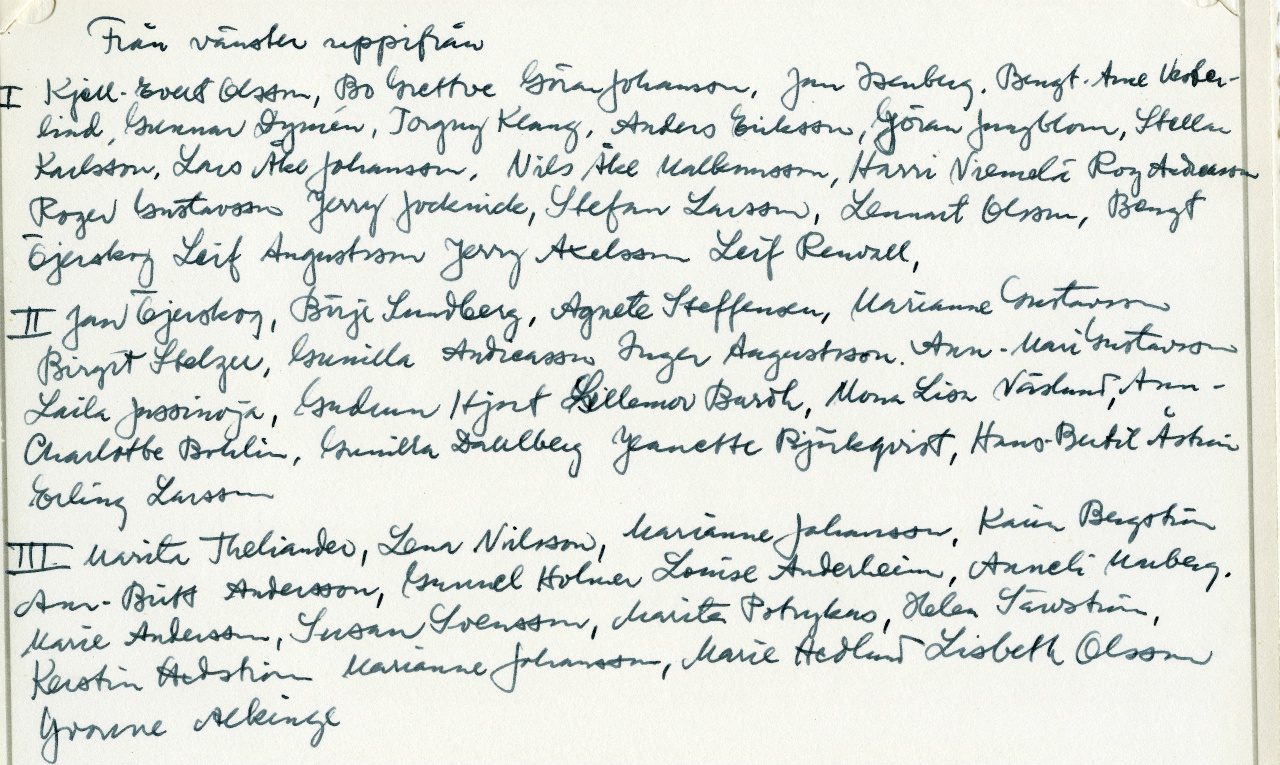 Från vänster uppifrån
I Kjell-Evert Olsson, Bo Grettve Göran Johanson, Jan Isenberg. Bengt-Arne Vester-
lind, Gunnar Dymén, Torgny Klang, Anders Eriksson, Göran Jungblom, Stellan
Karlsson, Lars Åke Johansson, Nils Åke Malkmusson, Harri Niemelä Roy Andreasson
Roger Gustavsson Jerry Jocknick, Stefan Larsson, Lennart Olsson, Bengt
Ejerskog Leif Augustsson Jerry Axelsson Leif Renvall,
II Jan Ejerskog, Börje Sundberg, Agnete Steffensen, Marianne Gustavsson
Birgit Stelzer, Gunilla Andreasson Inger Augustsson. Ann-Mari Gustavsson
Laila Jussinoja, Gudrun Hjort Lillemor Burdh, Mona Lisa Näslund, Ann-
Charlotte Bohlin, Gunilla Dahlberg Jeanette Björkqvist, Hans-Bertil Åström
Erling Larsson
III Marita Theliander, Lena Nilsson, Marianne Johansson, Karin Bergström
Ann-Britt Andersson, Gunnel Holmer Louise Anderheim, Anneli
Marie Andersson, Susan Svensson, Marita Potrykus, Helen
Kerstin Hedström Marianne Johansson, Marie Hedlund Lisbeth Olsson
Yvonne Alkinge